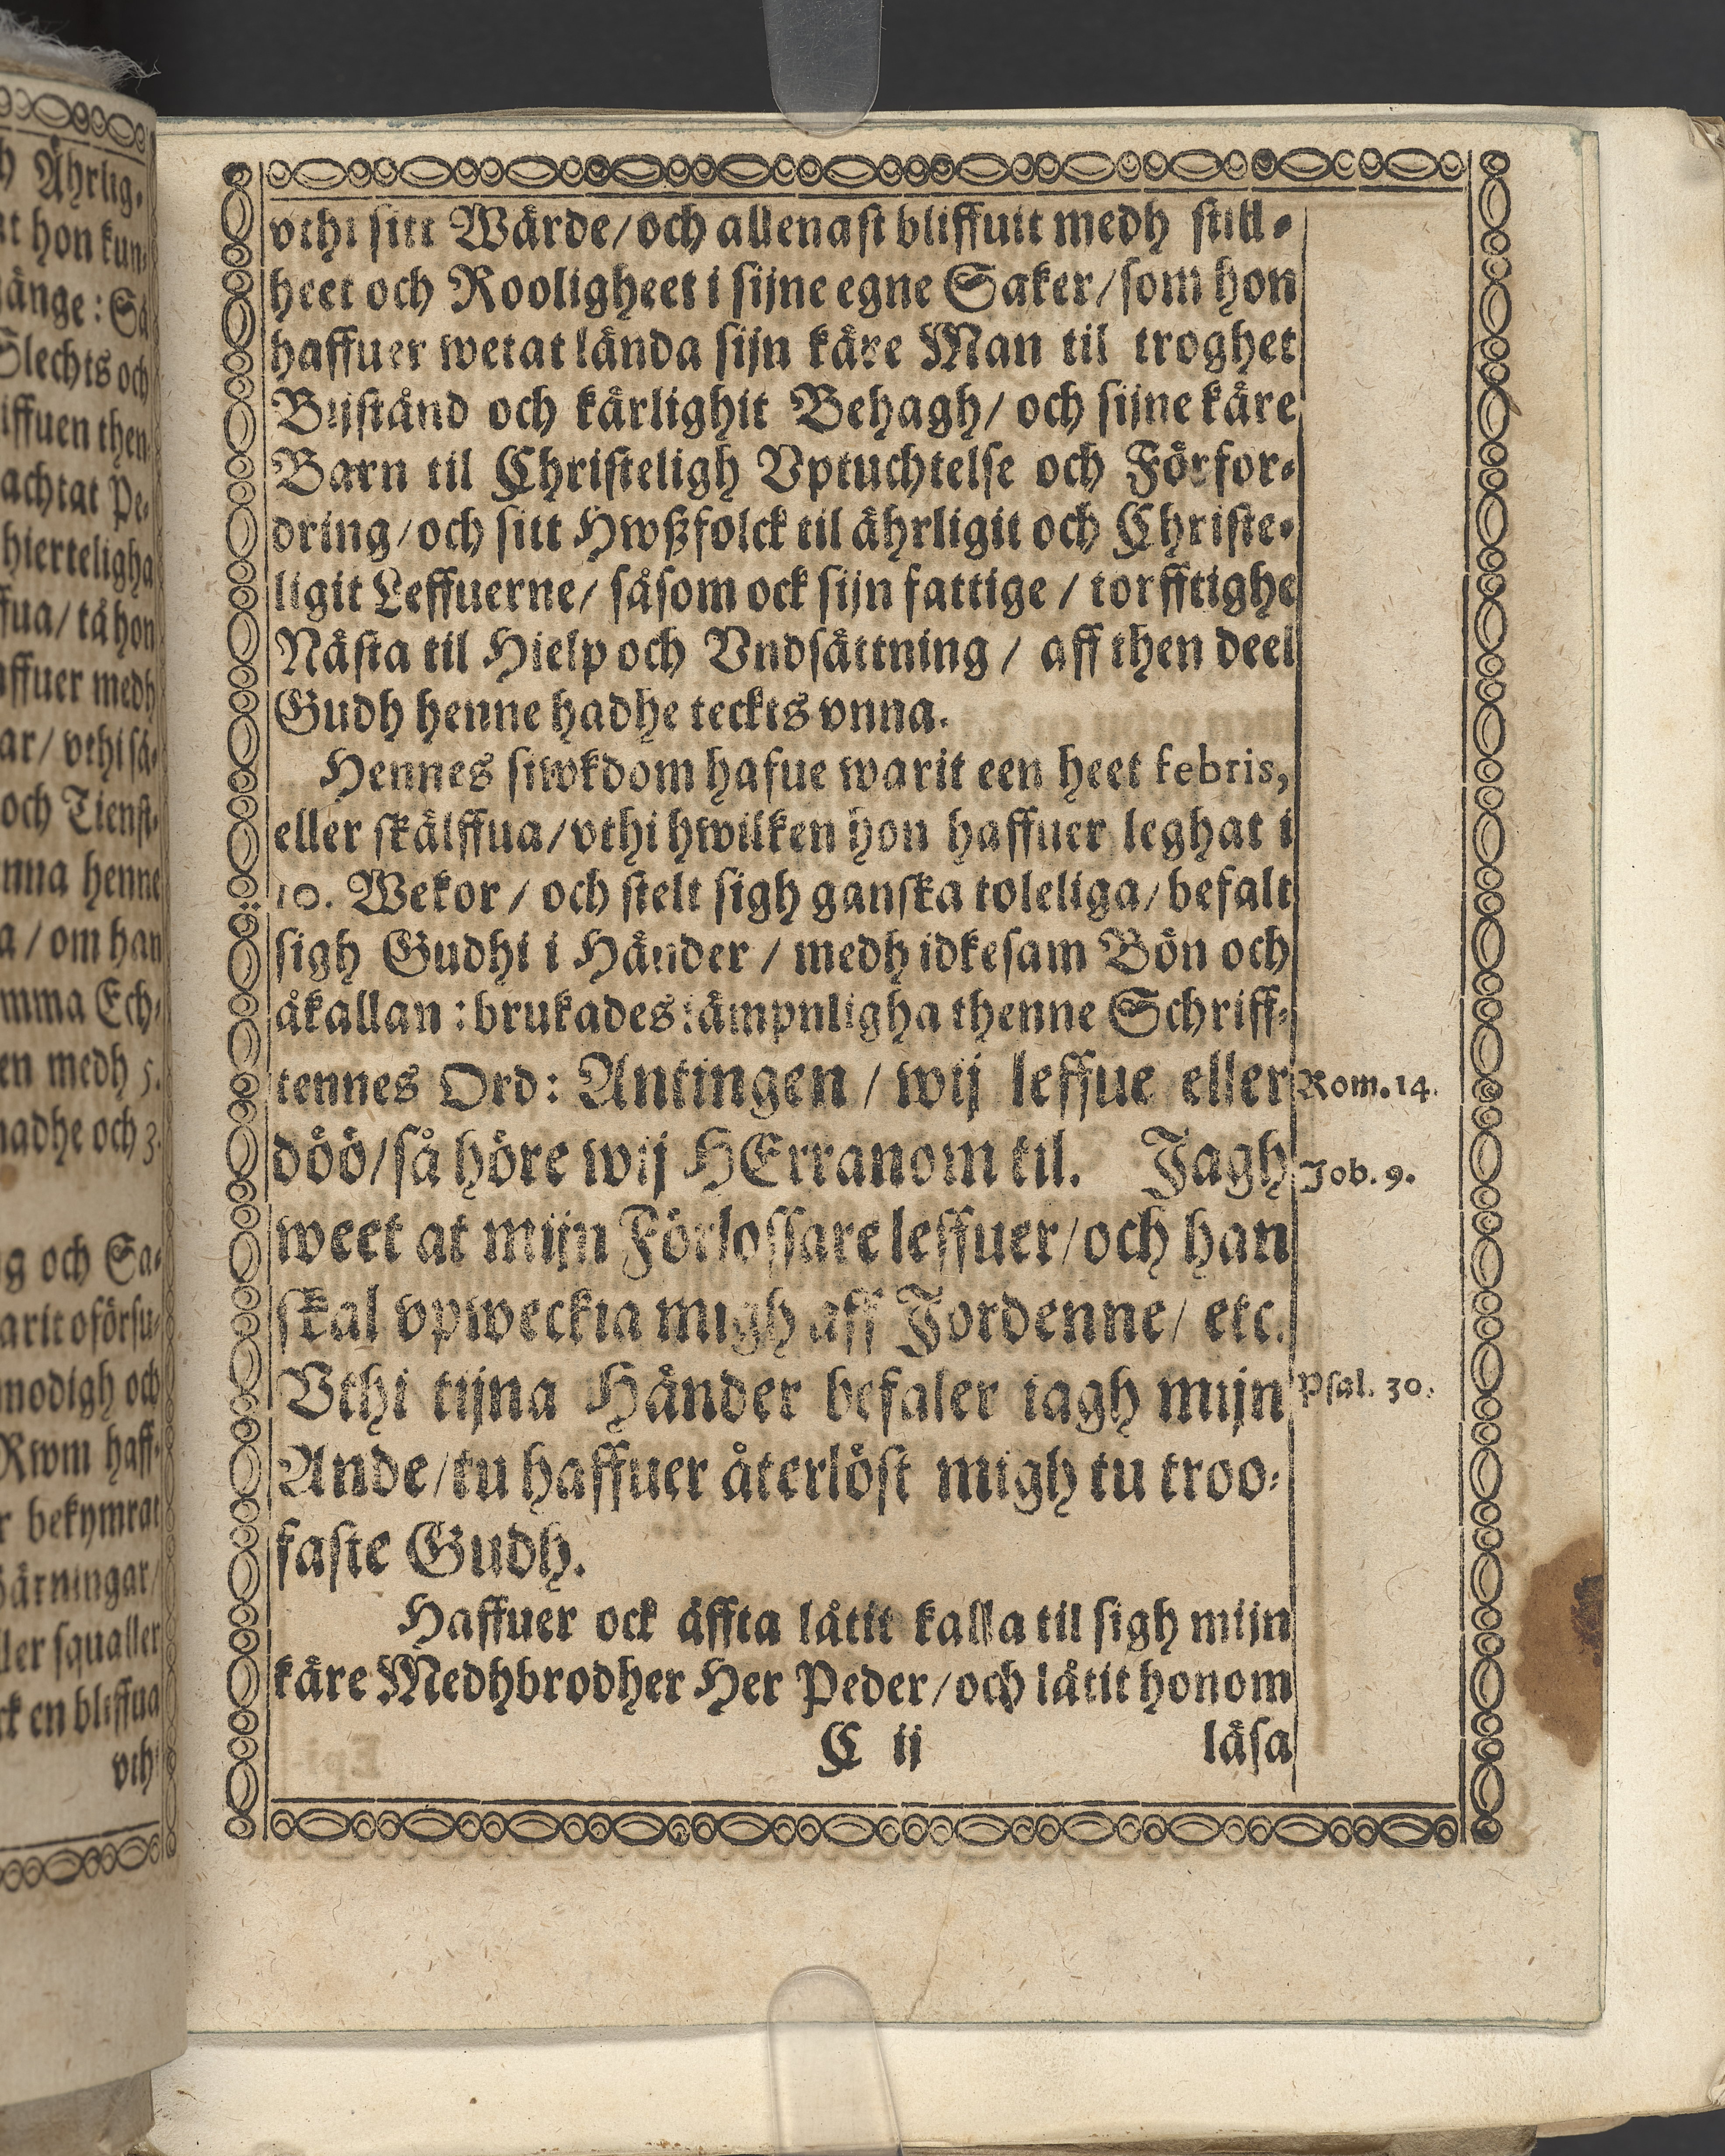 h Ährlig-
at hon kun-
gänge: Så
Slechts och
iffuen then
achtat Pe-
hierteligha
ffua/ tå hon
affuer medh
ar/ vthi så-
och Tienst-
nna henne
a/ om han
mma Ech-
en medh 5.
hadhe och 3.
g och Sa-
arit oförsu-
modigh och
Rwm haff-
r bekymrat
ärningar/
ller squaller
rk en bliffua
vthi
vthi sitt Wärde/och allenast bliffuit medh still-
heet och Rooligheet i sijne egne Saker/som hon
haffuer wetat lända sijn käre Man til troghet
Bijstånd och kärlighit Behagh/ och sijne käre
Barn til Christeligh Vptuchtelse och Förfor-
dring/och sitt Hwßfolck til ährligit och Christe-
ligit Leffuerne/ såsom ock sijn fattige / torfftighe
Nästa til Hielp och Vndsättning / aff then deel
Gudh henne hadhe teckts vnna.
Hennes siwkdom hafue warit een heet febris,
eller skälffua/vthi hwilken hon haffuer leghat i
10. Wekor / och stelt sigh ganska toleliga/ befalt
sigh Gudhi i Händer / medh idkesam Bön och
åkallan : brukades iämpnligha thenne Schriff-
tennes Ord: Antingen / wij leffue eller
döö/så höre wij HErranom til. Jagh
weet at mijn Förlossare leffuer/och han
skal vpweckia migh aff Jordenne/ etc.
Vthi tijna Händer befaler iagh mijn
Ande/tu haffuer återlöst migh tu troo-
faste Gudh.
Haffuer ock äffta låtit kalla til sigh mijn
käre Medhbrodher Her Peder/och låtit honom
C ij läsa
Rom. 14.
Job. 9.
Psal. 30.